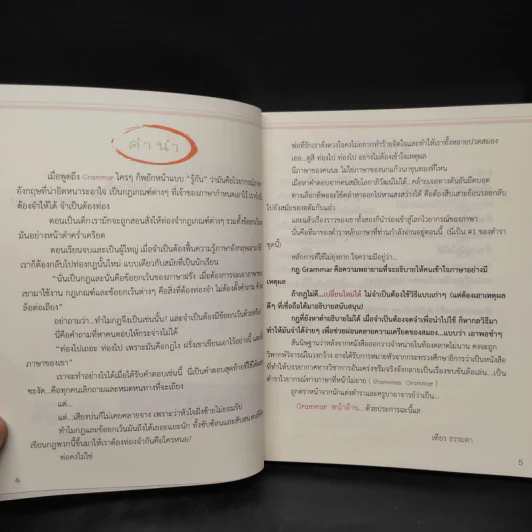 คำนำ
เมื่อพูดถึง Grammar ใครๆ ก็พยักหน้าแบบ "รู้กัน" ว่ามันคือไวยากรณ์ภาษา
อังกฤษที่น่าอิดหนาระอาใจ เป็นกฎเกณฑ์ต่างๆ ที่เจ้าของภาษากำหนดเอาไว้
ต้องจำให้ได้ จำเป็นต้องท่อง
ตอนเป็นเด็กเรามักจะถูกสอนสั่งให้ท่องจำกฎเกณฑ์ต่างๆ รวมทั้งข้อยกเว้น
มันอย่างหน้าดำคร่ำเครียด
ตอนเรียนจบและเป็นผู้ใหญ่ เมื่อจำเป็นต้องฟื้นความรู้ภาษาอังกฤษ
เราก็ต้องกลับไปท่องกฎนั้นใหม่ แบบเดียวกับสมัยที่เป็นนักเรียน
"นั่นเป็นกฎและนั่นคือข้อยกเว้นของภาษาฝรั่ง เมื่อต้องการจะเอาภาษา
เขามาใช้งาน กฎเกณฑ์และข้อยกเว้นต่างๆ คือสิ่งที่ต้องท่องจำ ไม่ต้องตั้งคำถาม
ล้อต่อเถียง"
อย่าถามว่า...ทำไมกฎจึงเป็นเช่นนั้น? และจำเป็นต้องมีข้อยกเว้นด้วยหรือ?
นี่คือคำถามที่หาคนตอบให้กระจ่างไม่ได้
"ท่องไปเถอะ ท่องไป เพราะมันคือกฎไง ฝรั่งเขาเขียนเอาไว้อย่างนี้
ภาษาของเขา"
เราจะทำอย่างไรได้เมื่อได้รับคำตอบเช่นนี้ นี่เป็นคำตอบสุดท้ายที่ใช้ได้
ชะงัด...คือทุกคนเลิกถามและหมดหนทางที่จะเถียง
แต่...
แต่...เสียงบ่นก็ไม่เคยคลายจาง เพราะว่าหัวใจฝ่ายซ้ายไม่ยอมรับ
ทำไมกฎและข้อยกเว้นมันถึงได้เยอะแยะนัก ทั้งซับซ้อนและสับสน
เขียนกฎพวกนี้ขึ้นมาให้เราต้องท่องจำกันคือใครหนอ?
พ่อคงไม่ใช่
4
พ่อที่รักเราดังดวงใจคงไม่อยากทำร้ายจิตใจและทำให้เราทั้งหลายปวดสมอง
เออ...ดูสิ ท่องไป ท่องไป อย่างไม่ต้องเข้าใจเหตุผล
นี่ภาษาของคนนะ ไม่ใช่ภาษาของนกแก้วนกขุนทองที่ไหน
เมื่อหาคำตอบจากคนสมัยโลกาภิวัฒน์ไม่ได้...คล้ายเจอทางตันอันมืดบอด
ทางเลือกที่พอจะใช้คลำหาทางออกไปหาแสงสว่างได้ คือต้องสืบเสาะย้อนรอยกลับ
ไปยังสมัยของอดัมกับแอว์
และแล้วเรื่องราวของเขาทั้งสองก็นำร่องเข้าสู่โลกไวยากรณ์ของภาษา
นั่นคือที่มาของตำราหลักภาษาที่ท่านกำลังอ่านอยู่ตอนนี้ (นี่เป็น #1 ของตำรา
ชุดนี้)
หลักการที่ใช้ไม่ยุ่งยาก ใจความมีอยู่ว่า...
กฎ Grammar คือความพยายามที่จะอธิบายให้คนเข้าใจภาษาอย่างมี
เหตุผล
ถ้ากฎไม่ดี...เปลี่ยนใหม่ได้ ไม่จำเป็นต้องใช้วิธีแบบเก่าๆ (แต่ต้องเอาเหตุผล
ดีๆ ที่เชื่อถือได้มาอธิบายสนับสนุน)
กฎที่ยังหาคำอธิบายไม่ได้ เมื่อจำเป็นต้องจดจำเพื่อนำไปใช้ ก็หากลวิธีมา
ทำให้มันจำได้ง่ายๆ เพื่อช่วยผ่อนคลายความเครียดของสมอง...แบบว่า เอาพอขำๆ
สันนิษฐานว่าหลังจากหนังสือออกวางจำหน่ายในท้องตลาดไม่นาน คงจะถูก
วิพากษ์วิจารณ์ในวงกว้าง อาจได้รับการหมายหัวจากกระทรวงศึกษาธิการว่าเป็นหนังสือ
ที่ทำให้บรรยากาศทางวิชาการอันเคร่งขรึมจริงจังกลายเป็นเรื่องขบขันล้อเล่น...เป็น
ตำราไวยากรณ์ทางภาษาที่หน้าไม่อาย (Shameless Grammar)
ถูกตราหน้าจากนักแต่งตำราและครูบาอาจารย์ว่าเป็น...
Grammar หน้าด้าน...ด้วยประการฉะนี้แล
เฑียร ธรรมดา
5